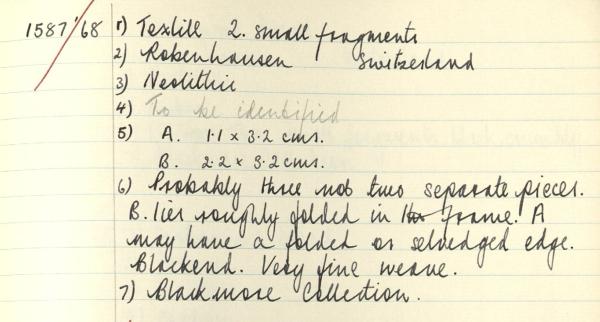 1587/'68 1) Textill 2. small fragments
2) Robenhausen Switzerland
3) Neolithic
4) To be identified
5) A. 1.1 x 3.2 cms.
B. 2.2 x 3.2 cms.
6) Probably three not two separate pieces.
B. lies roughly folded in frame. A
may have a folded or selvedged edge.
Blackend. Very fine weave.
7) Blackmore Collection.